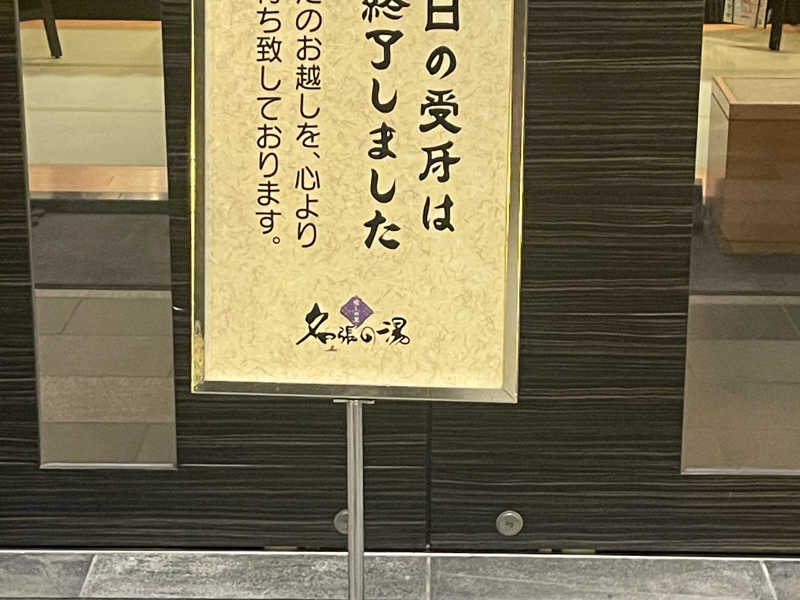 日の受付は
終了しました
たのお越しを、心より
待ち致しております。
癒しの里
名張の湯